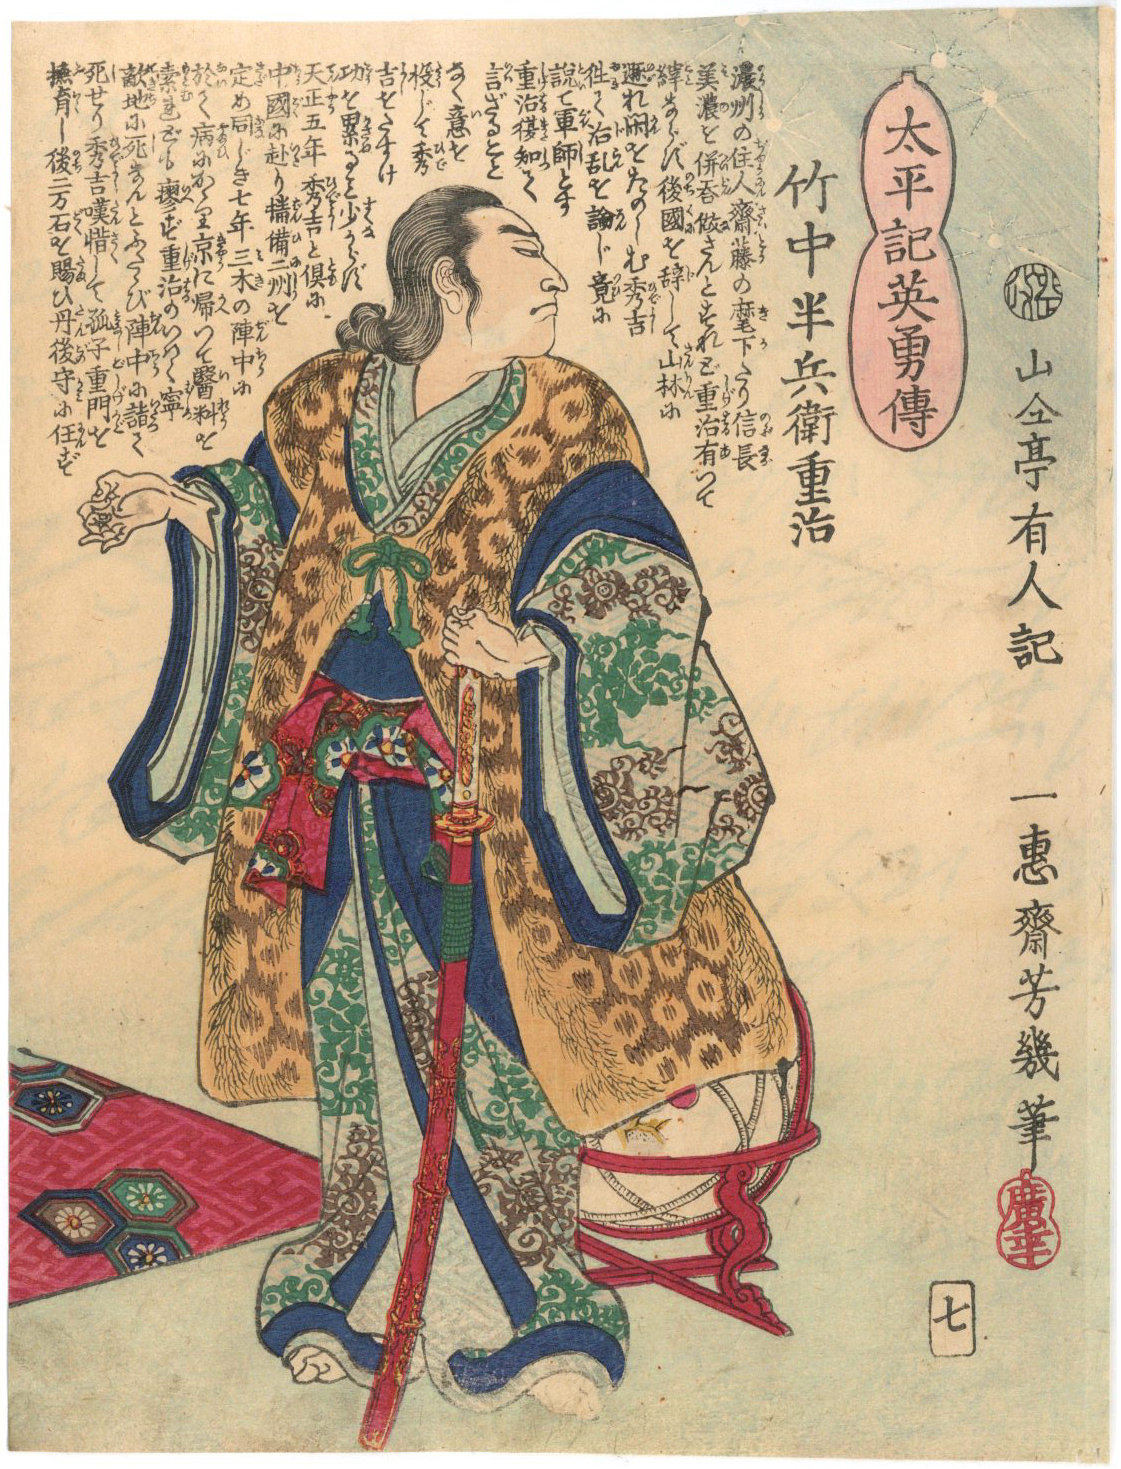 山仝亭有人記
一惠齋芳幾筆
廣幸
七
太平記英勇傳
竹中半兵衛重治
濃州の住人齋藤の麾下たり信長
美濃を併呑做さんとすれど重治有つて
後國を辞して山林に
遁れ閑をたのしむ秀吉
往て治乱を論じ竟に
説て軍師とす
重治機知く
言ざることを
なく意を
投じて秀
吉をたすけ
功を累ること少からず
天正五年秀吉と倶に
中國に赴り播備二州を
定め同じき七年三木の陣中に
於て病にかゝり京に帰つて醫お
索れども癒ず重治のいはく寧
敵地に死なんとふたゝび陣中に詣て
死せり秀吉嘆惜して孤子重門を
撫育し後二万石を賜ひ丹後守に任ず